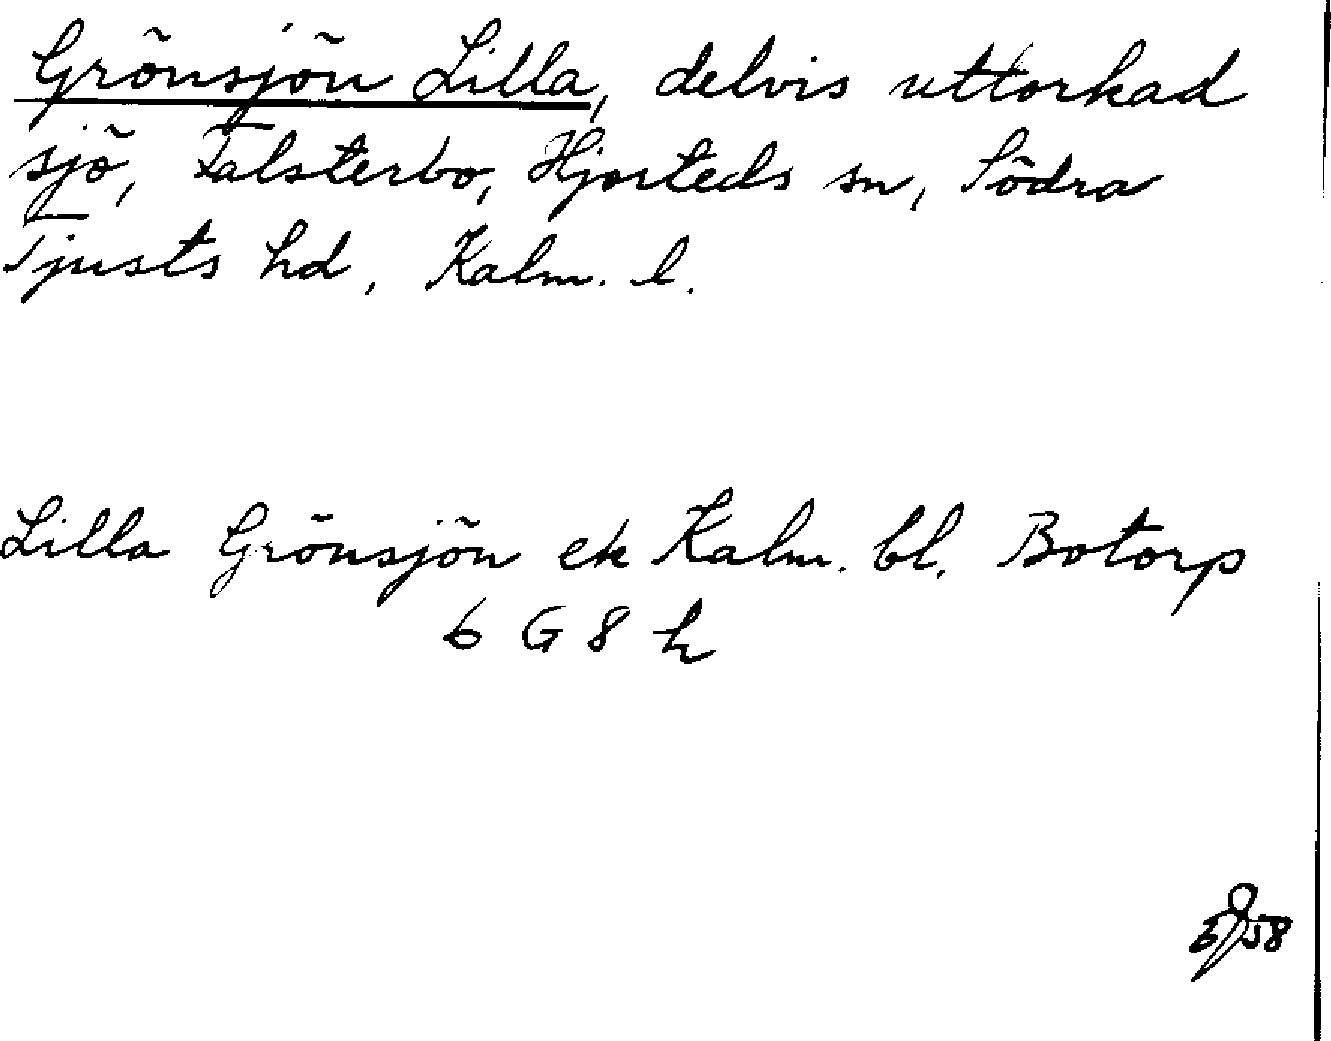 Grönsjön Lilla, delvis uttorkad
sjö, Falsterbo, Hjorteds sn, Södra
Tjusts hd, Kalm. l.
Lilla Grönsjön ek Kalm. bl. Botorp
6 G 8 h